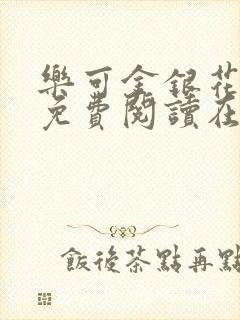 樂可金銀花
免費閱讀在
飯後茶點再點